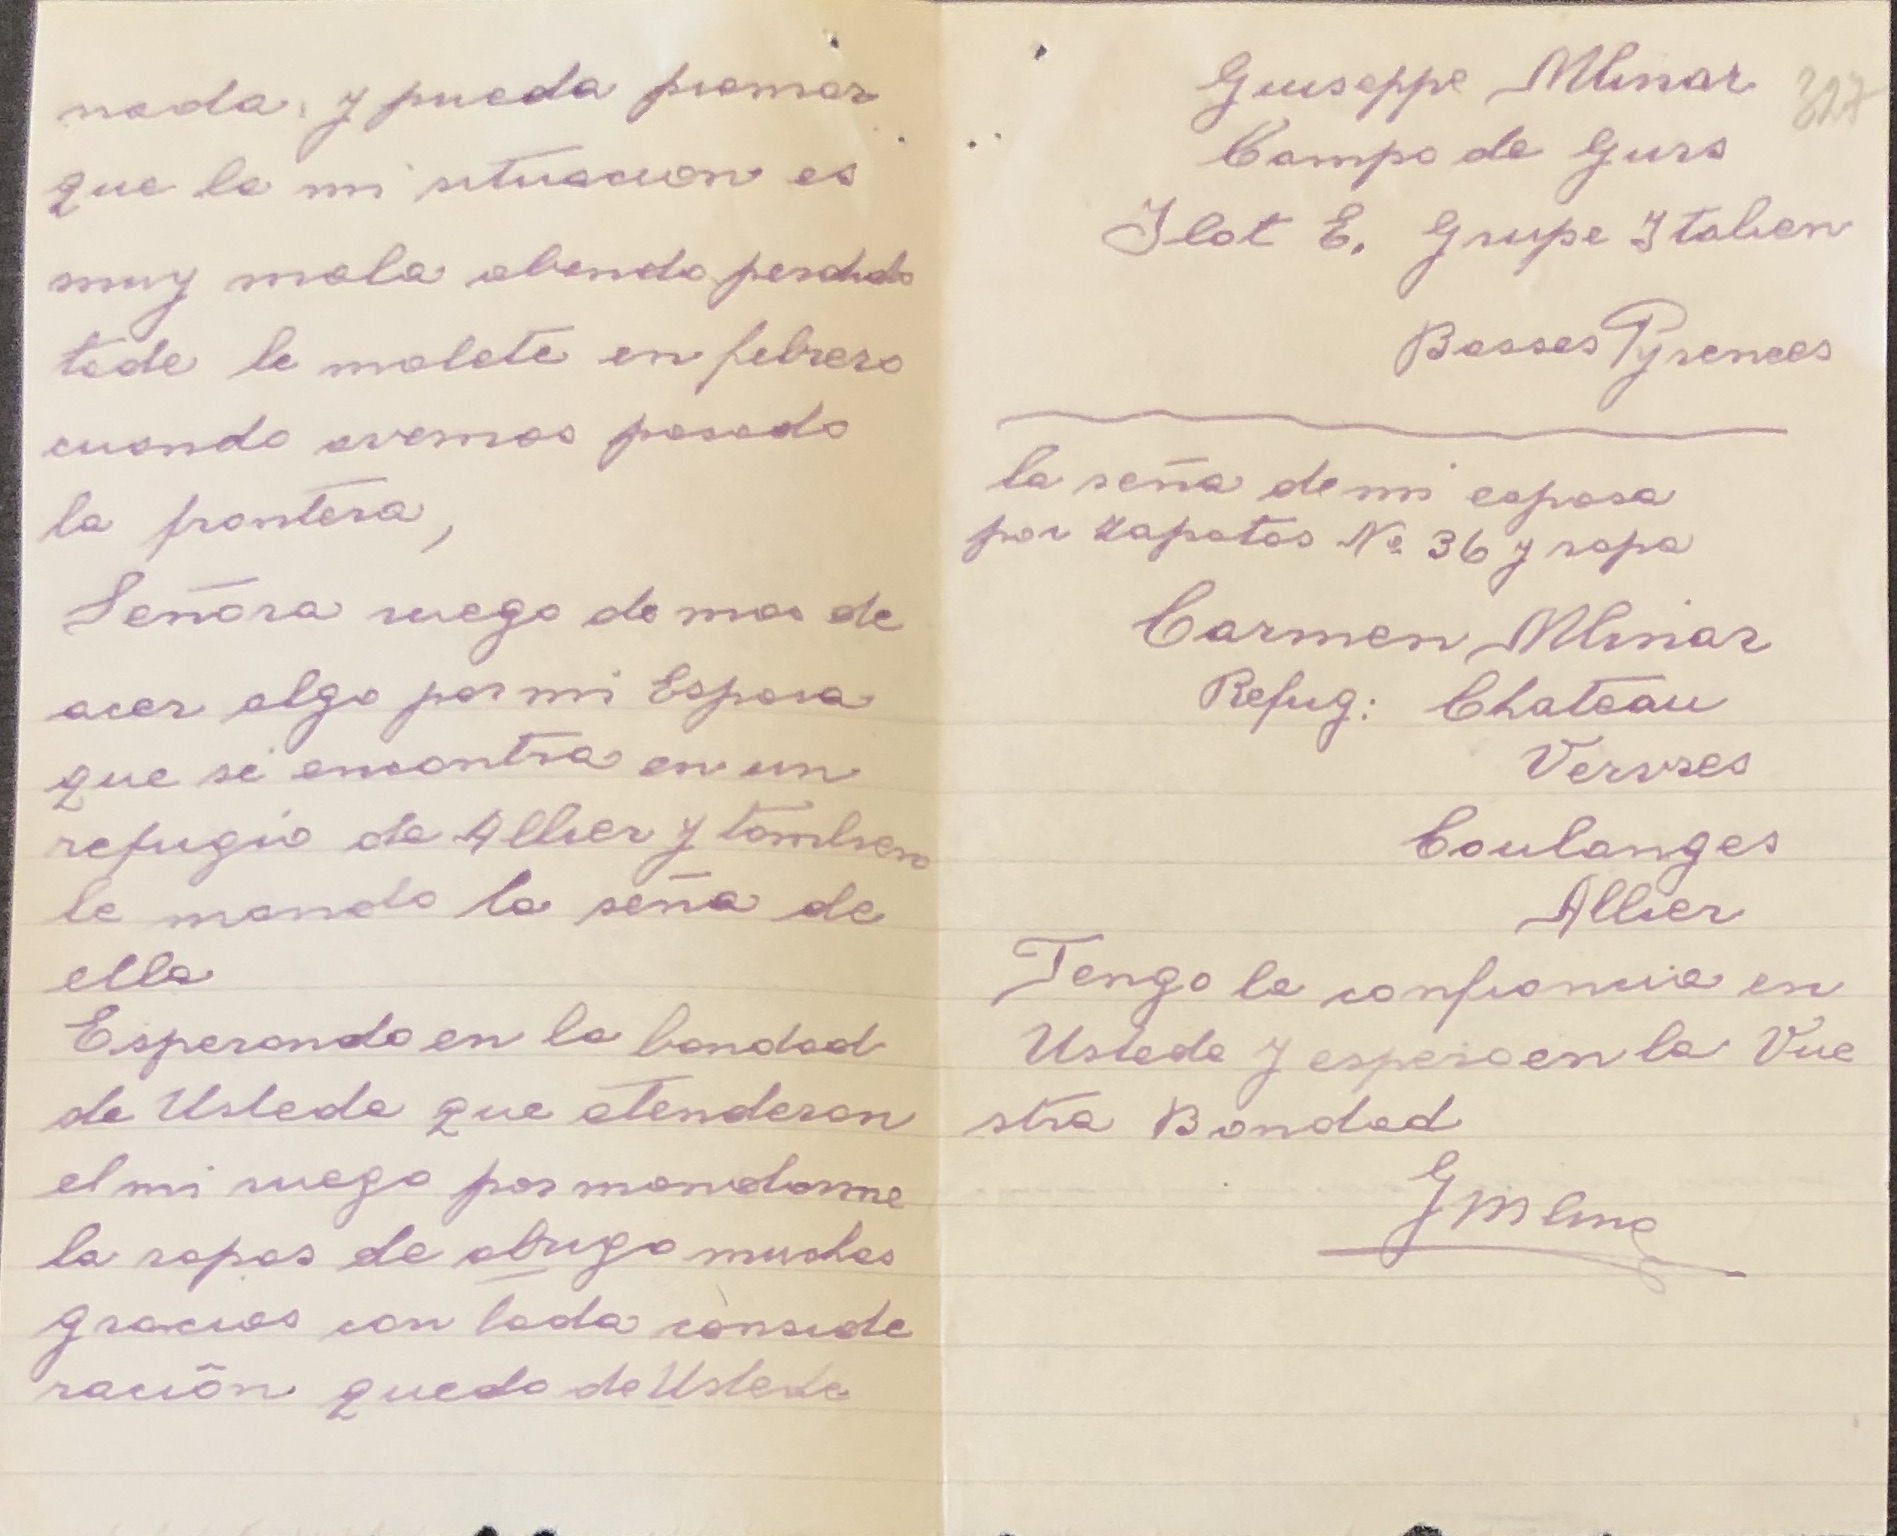 nada, y pueda piemar
que la mi situacion es
muy mala abendo perdido
tode le malete en febrero
cuando avemos pasado
la frontera,
Señora ruego de mas de
acer algo por mi Esposa
que se encontra en un
refugio de Allier y tambien
le mando la seña de
ella
Esperando en la bondad
de Ustede que atenderan
el mi ruego por mandarme
la ropas de abrigo muchas
gracias con tada conside
ración quedo de Ustede
Giuseppe Mlinar
327
Campo de Gurs
Ilot E. Grupe Italien
Basses Pyrenees
la seña de mi esposa
por zapatos No. 36 y ropa
Carmen Mlinar
Refug: Chateau
Coulanges
Allier
Tengo la confiancia en
Ustede y espero en la Vue
stra Bondad
G Mlina